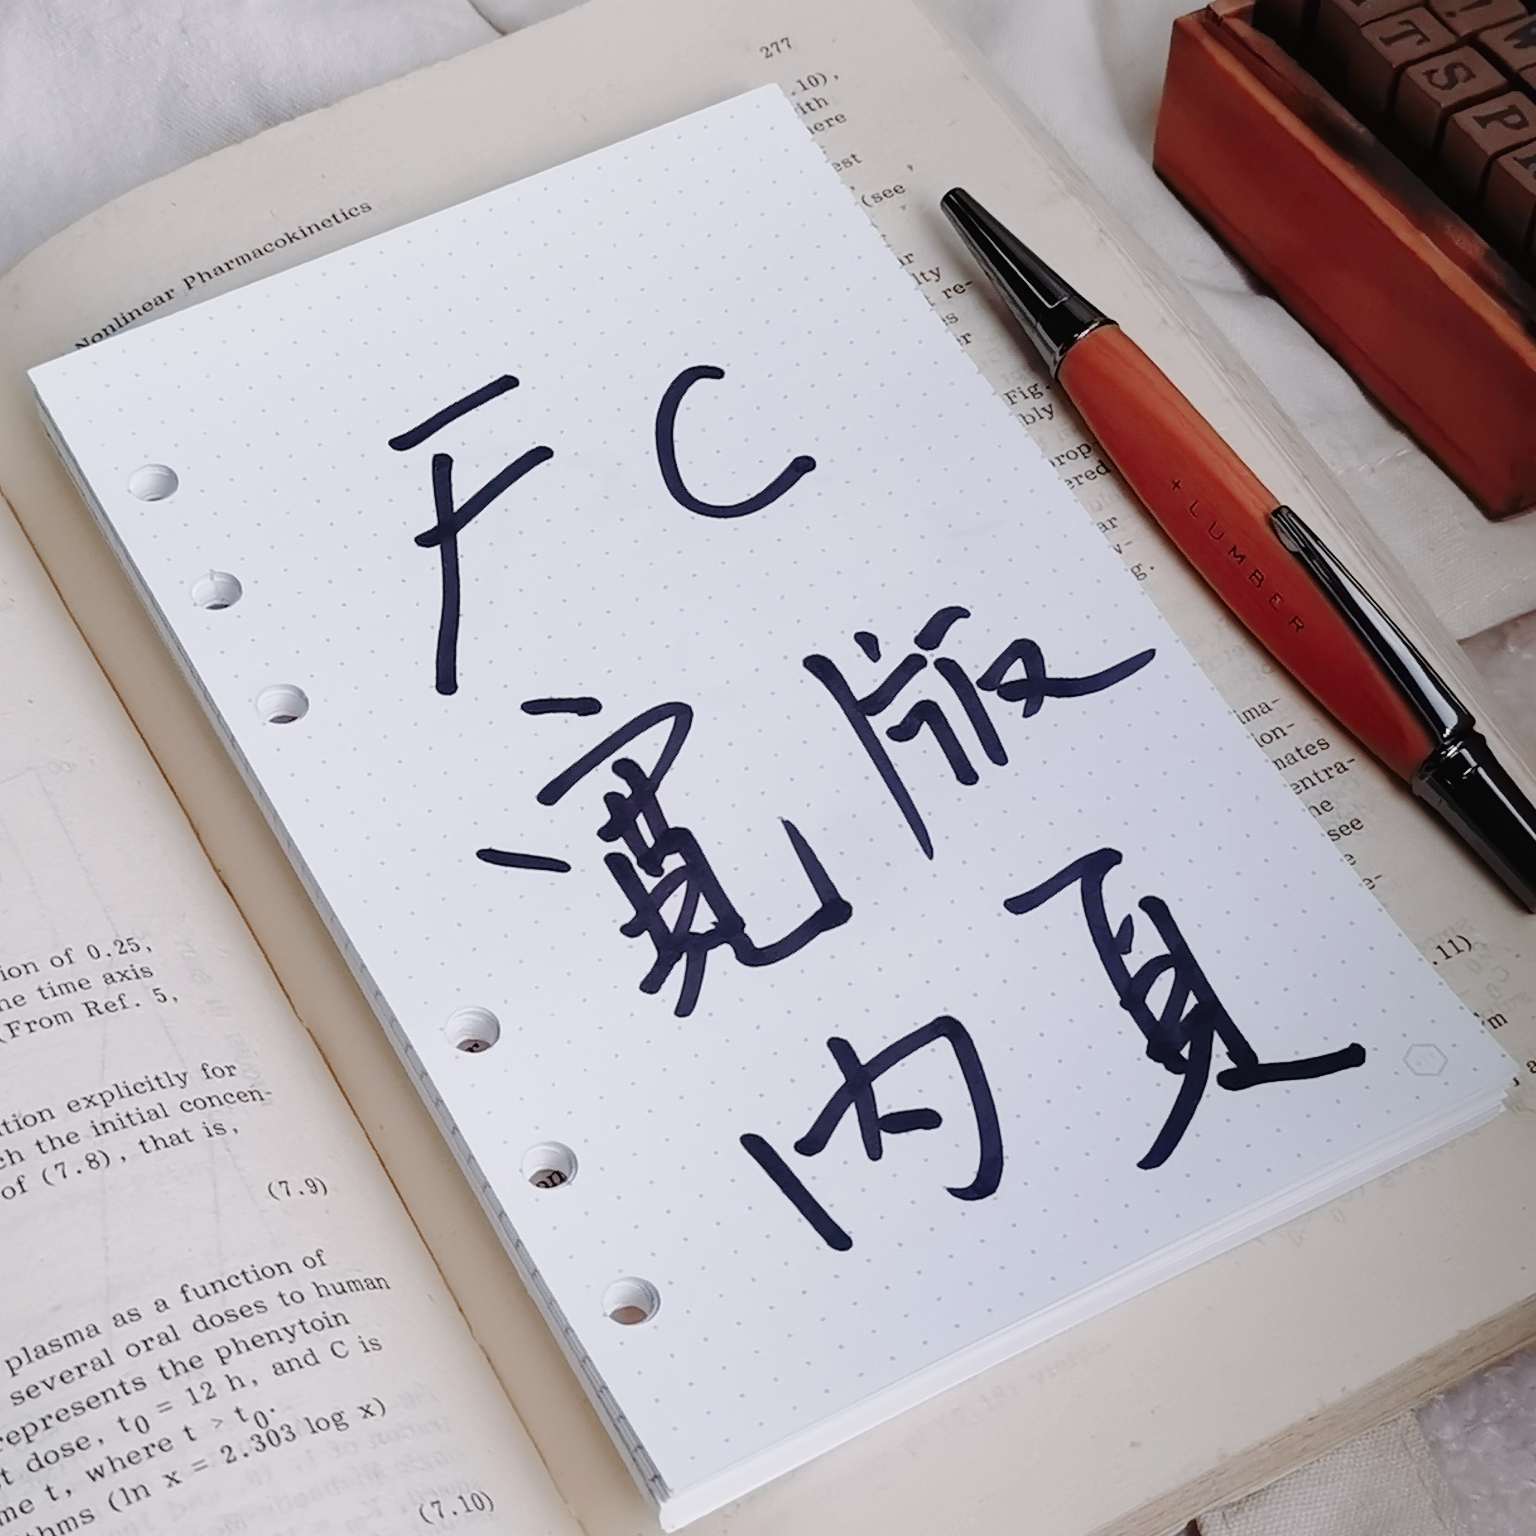 277
Nonlinear Pharmacokinetics
.10),
ith
here
est
(see
ar
lty
t re-
es
er
Fig.
bly
rop-
ered
ar
y-
g.
ima-
ion-
mates
entra-
he
see
e
e-
.11)
FC
寬版
內頁
+LUMBER
T S P
ion of 0.25,
he time axis
(From Ref. 5,
ation explicitly for
ch the initial concen-
of (7.8), that is,
(7.9)
plasma as a function of
several oral doses to human
represents the phenytoin
t dose, t0 = 12 h, and C is
me t, where t > t0.
thms (ln x = 2.303 log x)
(7.10)